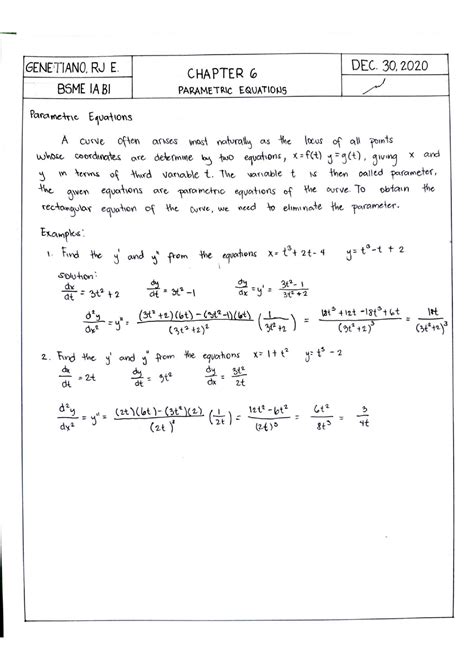 GENETIANO, RJ E.
CHAPTER 6
DEC. 30, 2020
BSME 1A B1
PARAMETRIC EQUATIONS
Parametric Equations
A curve often arises most naturally as the locus of all points
whose coordinates are determine by two equations, x=f(t) y=g(t), giving x and
y in terms of third variable t. The variable t is then called parameter,
the given equations are parametric equations of the curve. To obtain the
rectangular equation of the curve, we need to eliminate the parameter.
Examples:
1. Find the y' and y" from the equations x= t³+2t-4 y= t³-t+2
solution:
dx/dt = 3t²+2 dy/dt = 3t²-1 dy/dx = y' = 3t²-1/3t²+2
d²y/dx² = y" = (3t²+2)(6t)-(3t²-1)(6t)/(3t²+2)² (1/3t²+2) = 18t³+12t-18t³+6t/(3t²+2)³ = 18t/(3t²+2)³
2. Find the y' and y" from the equations x= 1+t² y= t³-2
dx/dt = 2t dy/dt = 3t² dy/dx = 3t²/2t
d²y/dx² = y" = (2t)(6t)-(3t²)(2)/(2t)² (1/2t) = 12t²-6t²/(2t)³ = 6t²/8t³ = 3/4t